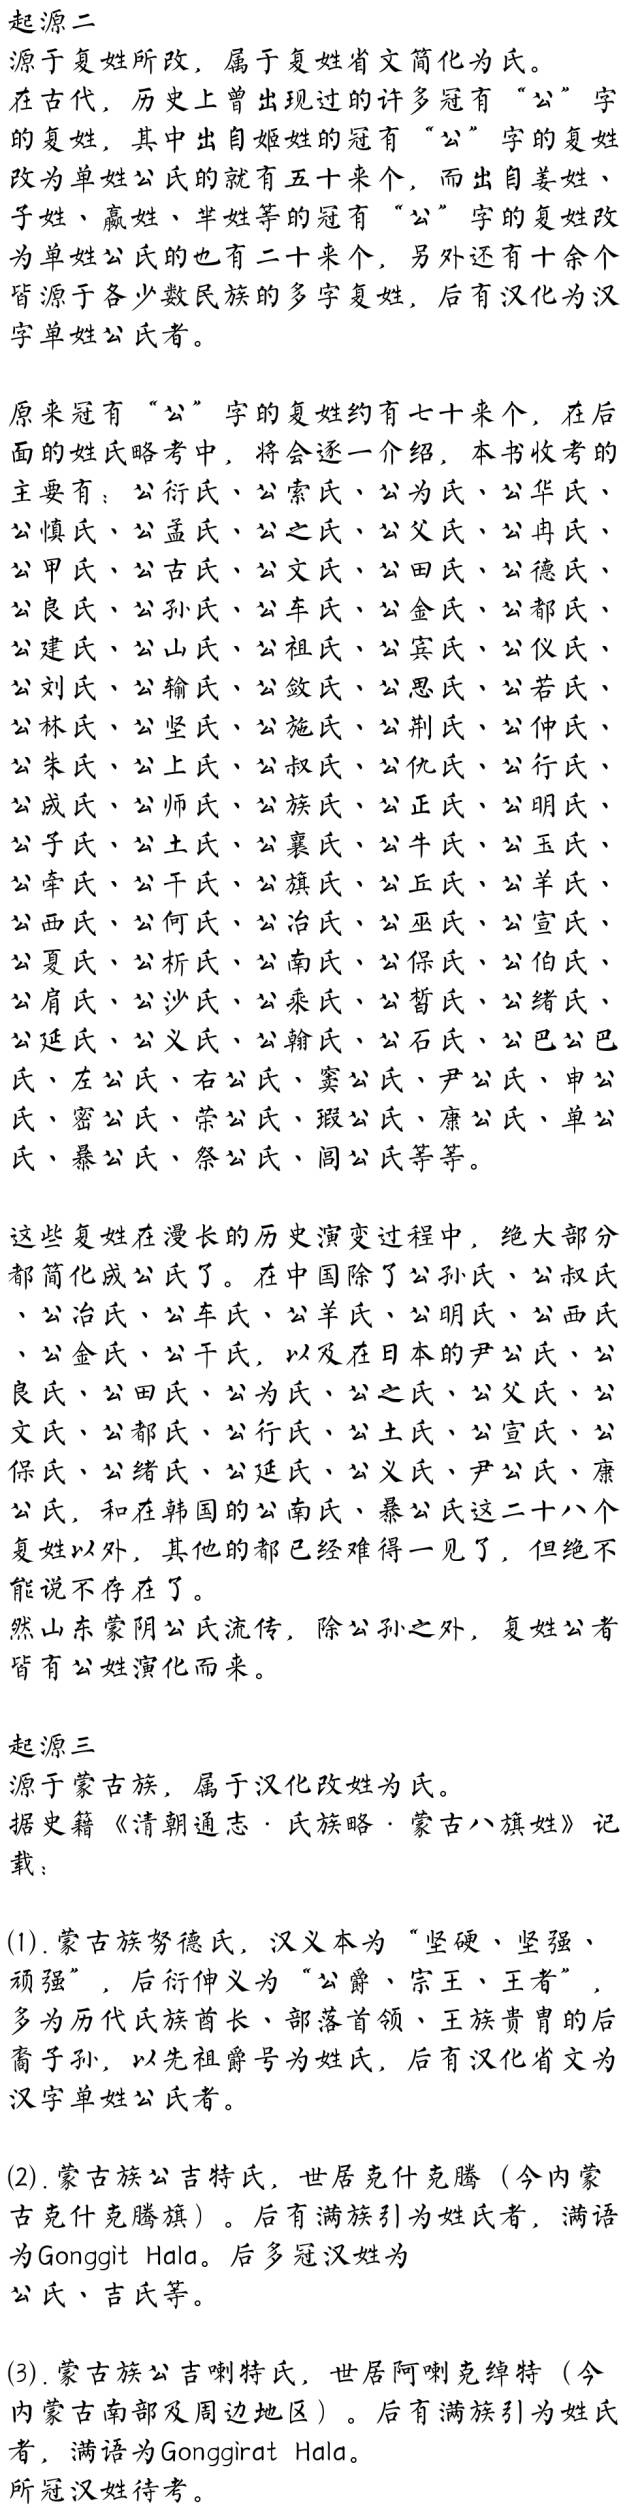 起源二
源于复姓所改，属于复姓省文简化为氏。
在古代，历史上曾出现过的许多冠有“公”字
的复姓，其中出自姬姓的冠有“公”字的复姓
改为单姓公氏的就有五十来个，而出自姜姓、
子姓、嬴姓、芈姓等的冠有“公”字的复姓改
为单姓公氏的也有二十来个，另外还有十余个
皆源于各少数民族的多字复姓，后有汉化为汉
字单姓公氏者。
原来冠有“公”字的复姓约有七十来个，在后
面的姓氏略考中，将会逐一介绍，本书收考的
主要有：公衍氏、公索氏、公为氏、公华氏、
公慎氏、公孟氏、公之氏、公父氏、公冉氏、
公甲氏、公古氏、公文氏、公田氏、公德氏、
公良氏、公孙氏、公车氏、公金氏、公都氏、
公建氏、公山氏、公祖氏、公宾氏、公仪氏、
公刘氏、公输氏、公敛氏、公思氏、公若氏、
公林氏、公坚氏、公施氏、公荆氏、公仲氏、
公朱氏、公上氏、公叔氏、公仇氏、公行氏、
公成氏、公师氏、公族氏、公正氏、公明氏、
公子氏、公土氏、公襄氏、公牛氏、公玉氏、
公牵氏、公干氏、公旗氏、公丘氏、公羊氏、
公西氏、公何氏、公冶氏、公巫氏、公宣氏、
公夏氏、公析氏、公南氏、公保氏、公伯氏、
公肩氏、公沙氏、公乘氏、公皙氏、公绪氏、
公延氏、公义氏、公翰氏、公石氏、公巴公巴
氏、左公氏、右公氏、窦公氏、尹公氏、申公
氏、密公氏、荣公氏、瑕公氏、康公氏、单公
氏、暴公氏、祭公氏、闾公氏等等。
这些复姓在漫长的历史演变过程中，绝大部分
都简化成公氏了。在中国除了公孙氏、公叔氏
、公冶氏、公车氏、公羊氏、公明氏、公西氏
、公金氏、公干氏，以及在日本的尹公氏、公
良氏、公田氏、公为氏、公之氏、公父氏、公
文氏、公都氏、公行氏、公土氏、公宣氏、公
保氏、公绪氏、公延氏、公义氏、尹公氏、康
公氏，和在韩国的公南氏、暴公氏这二十八个
复姓以外，其他的都已经难得一见了，但绝不
能说不存在了。
然山东蒙阴公氏流传，除公孙之外，复姓公者
皆有公姓演化而来。
起源三
源于蒙古族，属于汉化改姓为氏。
据史籍《清朝通志·氏族略·蒙古八旗姓》记
载：
⑴.蒙古族努德氏，汉义本为“坚硬、坚强、
顽强”，后衍伸义为“公爵、宗王、王者”，
多为历代氏族酋长、部落首领、王族贵胄的后
裔子孙，以先祖爵号为姓氏，后有汉化省文为
汉字单姓公氏者。
⑵.蒙古族公吉特氏，世居克什克腾（今内蒙
古克什克腾旗）。后有满族引为姓氏者，满语
为Gonggit Hala。后多冠汉姓为
公氏、吉氏等。
⑶.蒙古族公吉喇特氏，世居阿喇克绰特（今
内蒙古南部及周边地区）。后有满族引为姓氏
者，满语为Gonggirat Hala。
所冠汉姓待考。